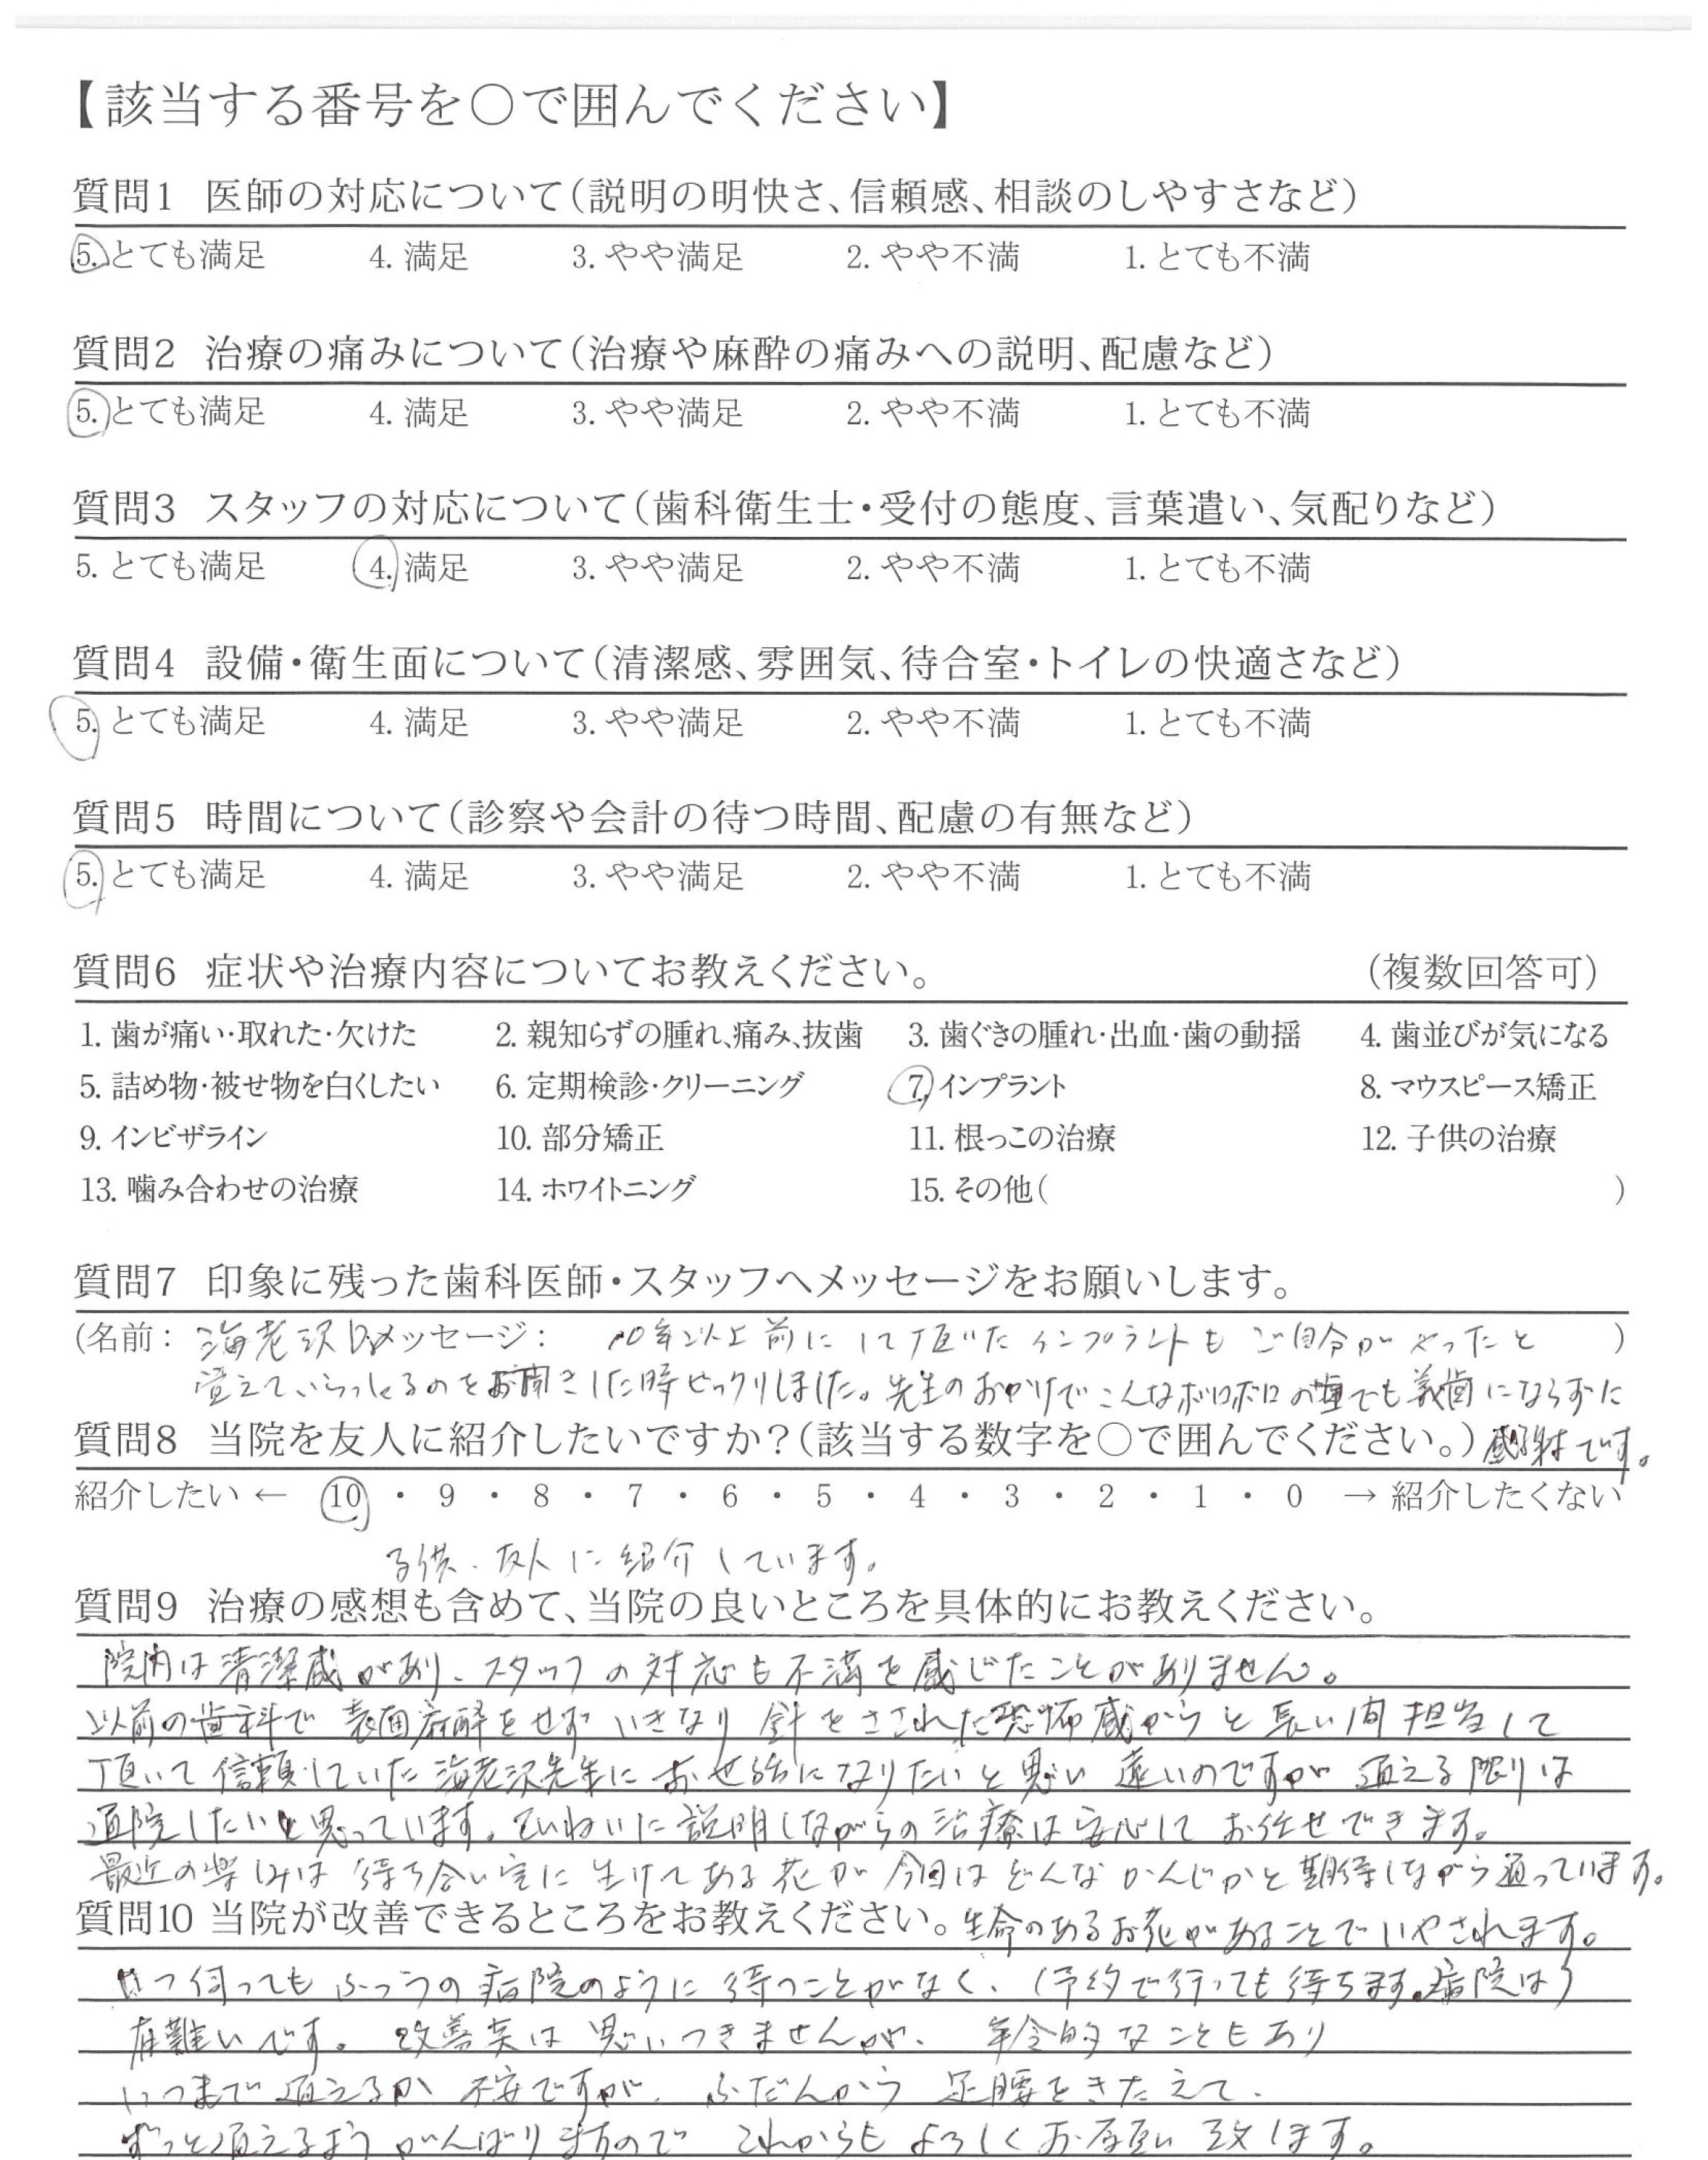 【該当する番号を○で囲んでください】
質問1 医師の対応について(説明の明快さ、信頼感、相談のしやすさなど)
5. とても満足 4. 満足 3. やや満足 2. やや不満 1. とても不満
質問2 治療の痛みについて(治療や麻酔の痛みへの説明、配慮など)
5. とても満足 4. 満足 3. やや満足 2. やや不満 1. とても不満
質問3 スタッフの対応について(歯科衛生士・受付の態度、言葉遣い、気配りなど)
5. とても満足 4. 満足 3. やや満足 2. やや不満 1. とても不満
質問4 設備・衛生面について(清潔感、雰囲気、待合室・トイレの快適さなど)
5. とても満足 4. 満足 3. やや満足 2. やや不満 1. とても不満
質問5 時間について(診察や会計の待つ時間、配慮の有無など)
5. とても満足 4. 満足 3. やや満足 2. やや不満 1. とても不満
質問6 症状や治療内容についてお教えください。 (複数回答可)
1. 歯が痛い・取れた・欠けた 2. 親知らずの腫れ、痛み、抜歯 3. 歯ぐきの腫れ・出血・歯の動揺 4. 歯並びが気になる
5. 詰め物・被せ物を白くしたい 6. 定期検診・クリーニング 7. インプラント 8. マウスピース矯正
9. インビザライン 10. 部分矯正 11. 根っこの治療 12. 子供の治療
13. 噛み合わせの治療 14. ホワイトニング 15. その他( )
質問7 印象に残った歯科医師・スタッフへメッセージをお願いします。
(名前: 海老沢Dr メッセージ: 10年以上前にして頂いたインプラントもご自分がやったと )
覚えていらっしゃるのをお聞きした時ビックリしました。先生のおかげでこんなボロボロの歯でも義歯にならずに
質問8 当院を友人に紹介したいですか?(該当する数字を○で囲んでください。) 感謝です。
紹介したい ← 10 ・ 9 ・ 8 ・ 7 ・ 6 ・ 5 ・ 4 ・ 3 ・ 2 ・ 1 ・ 0 → 紹介したくない
子供、友人に紹介しています。
質問9 治療の感想も含めて、当院の良いところを具体的にお教えください。
院内は清潔感があり、スタッフの対応も不満を感じたことがありません。
以前の歯科で表面麻酔をせずいきなり針をさされた恐怖感からと長い間担当して
頂いて信頼していた海老沢先生にお世話になりたいと思い遠いのですが通える限りは
通院したいと思っています。ていねいに説明しながらの治療は安心してお任せできます。
最近の楽しみは待ち合い室に生けてある花が今回はどんなかんじかと期待しながら通っています。
質問10 当院が改善できるところをお教えください。生命のあるお花があることでいやされます。
いつ伺ってもふつうの病院のように待つことがなく、(予約で行っても待ちます。病院は)
有難いです。改善策は思いつきませんが、年令的なこともあり
いつまで通えるか不安ですが、ふだんから足腰をきたえて、
ずっと通えるようがんばりますのでこれからもよろしくお願い致します。